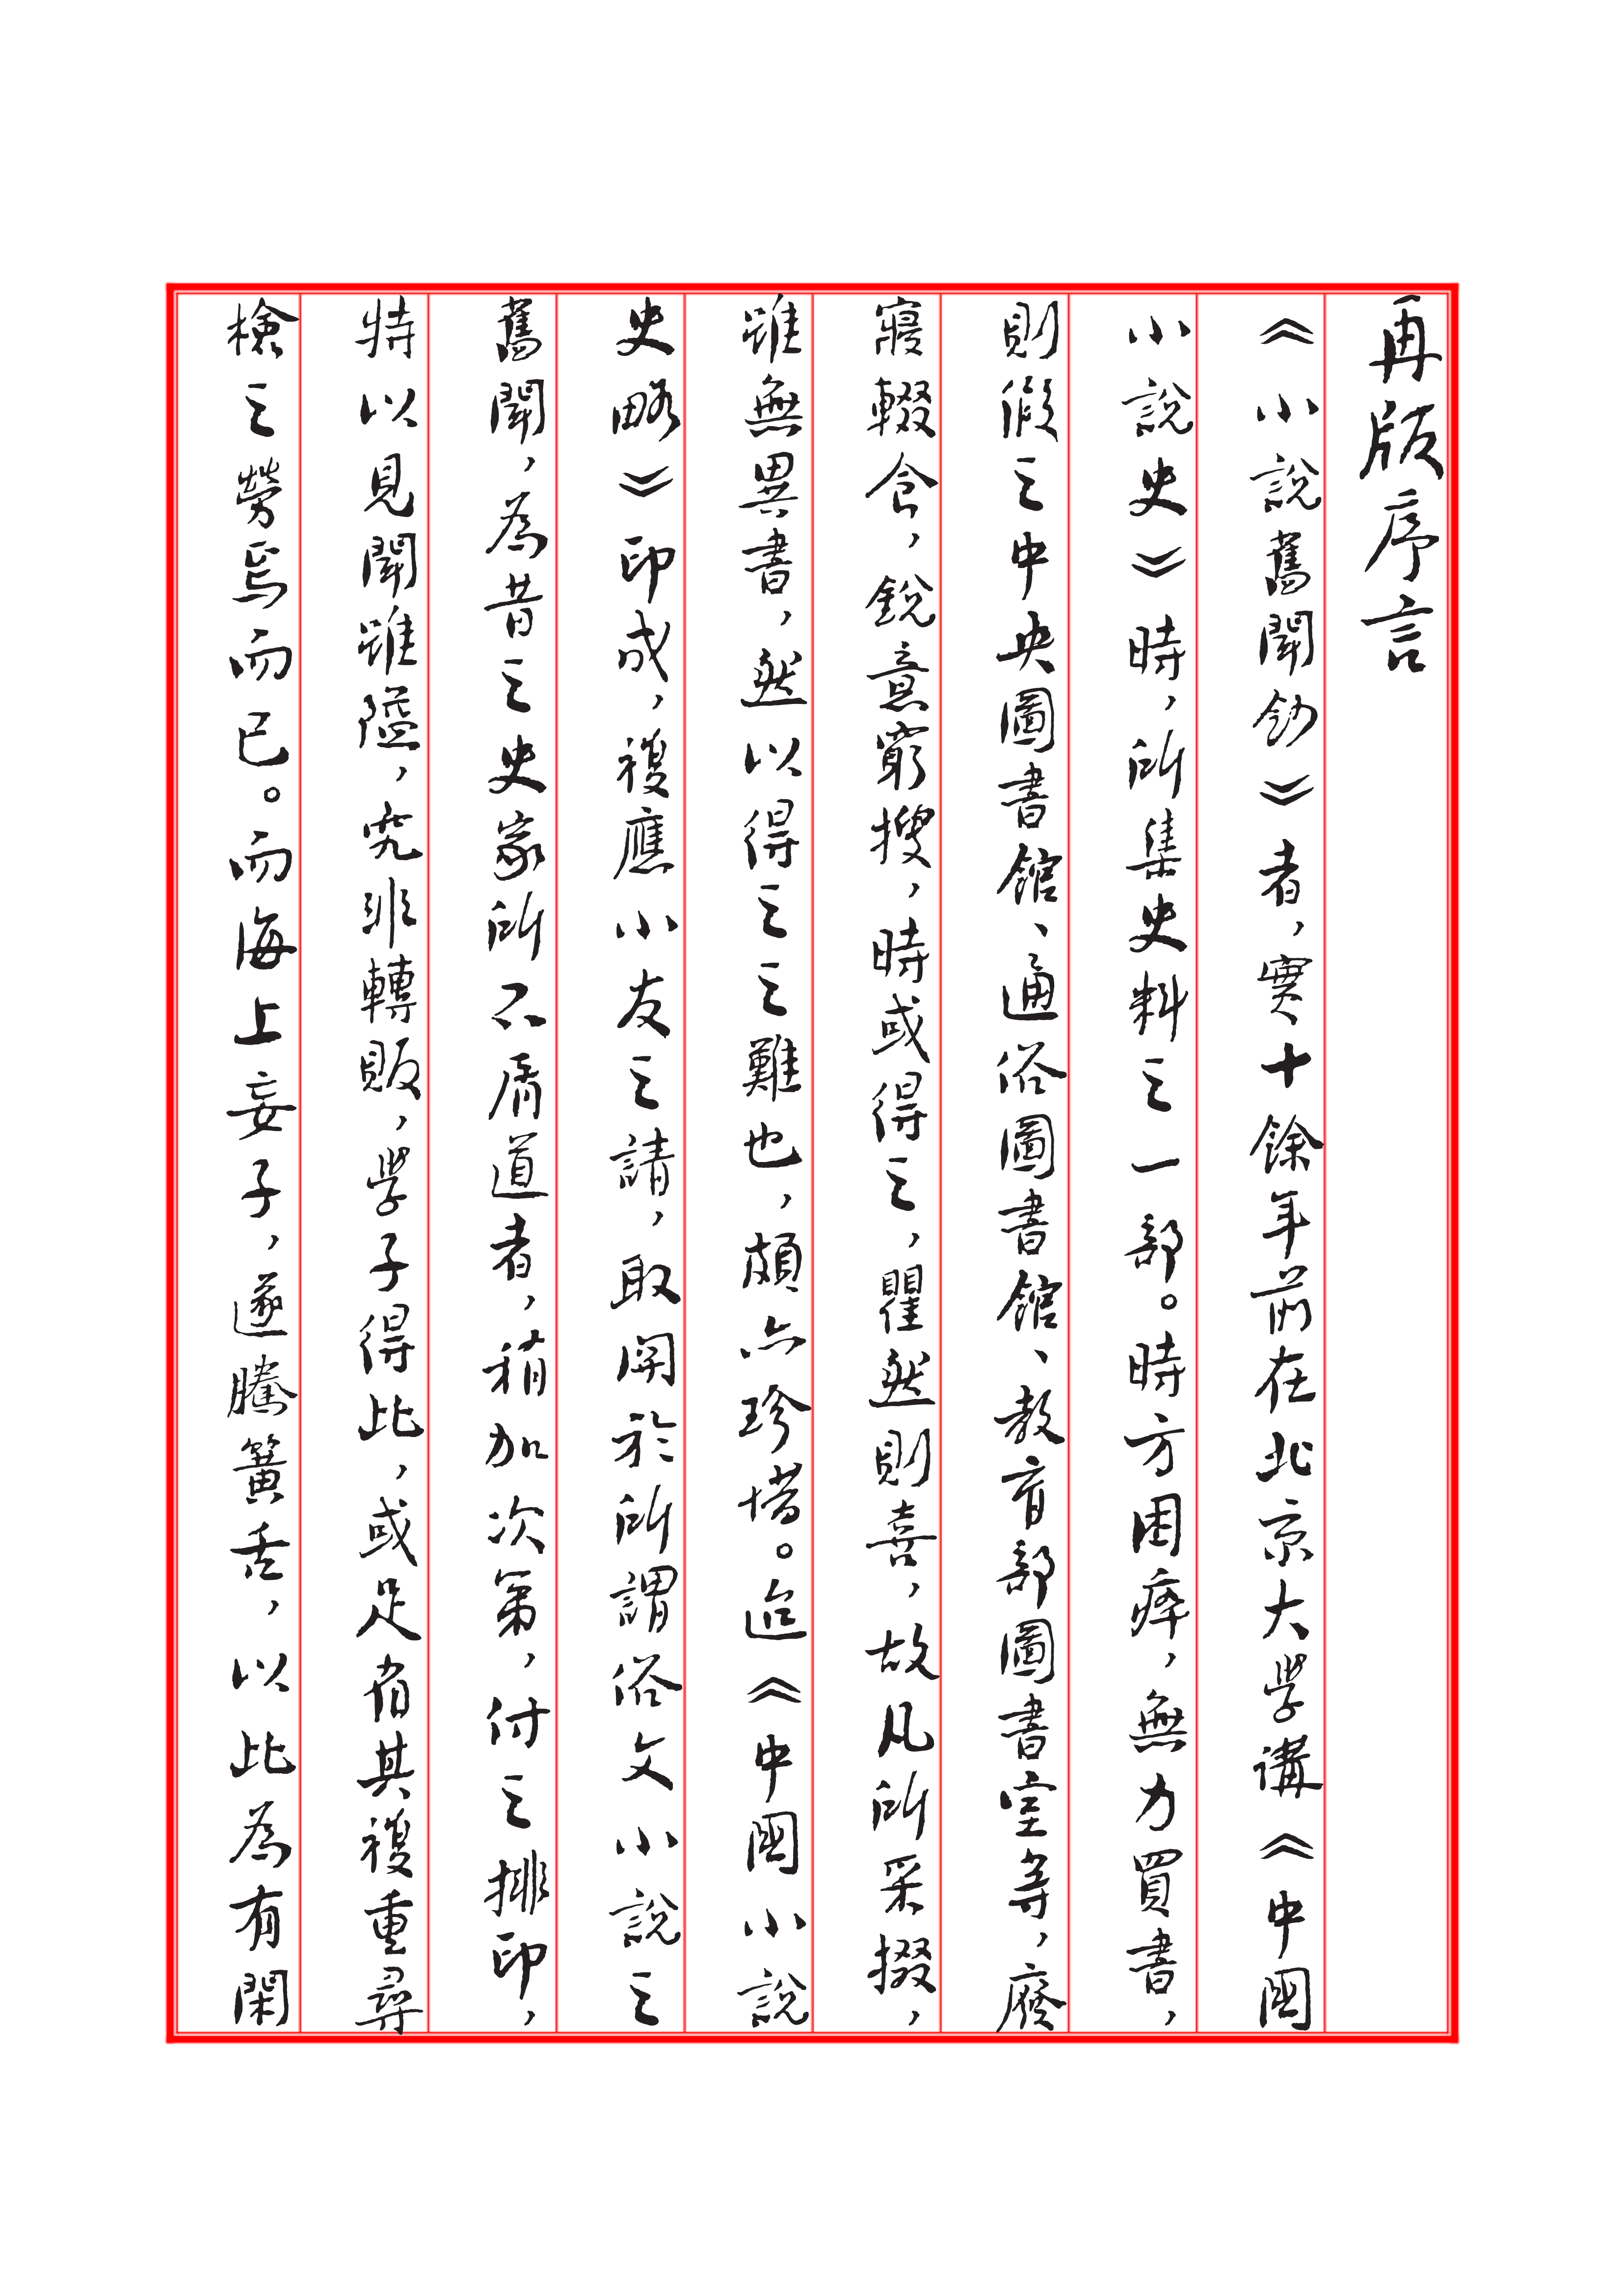 再版序言
《小說舊聞鈔》者，實十餘年前在北京大學講《中國
小說史》時，所集史料之一部。時方困瘁，無力買書，
則假之中央圖書館、通俗圖書館、教育部圖書室等，廢
寢輟食，銳意窮搜，時或得之，瞿然則喜，故凡所采掇，
雖無異書，然以得之之難也，頗亦珍惜。迨《中國小說
史略》印成，複應小友之請，取關於所謂俗文小說之
舊聞，為昔之史家所不屑道者，稍加次第，付之排印，
特以見聞雖隘，究非轉販，學子得此，或足省其複重尋
檢之勞焉而已。而海上妄子，遂騰簧舌，以此為有閑